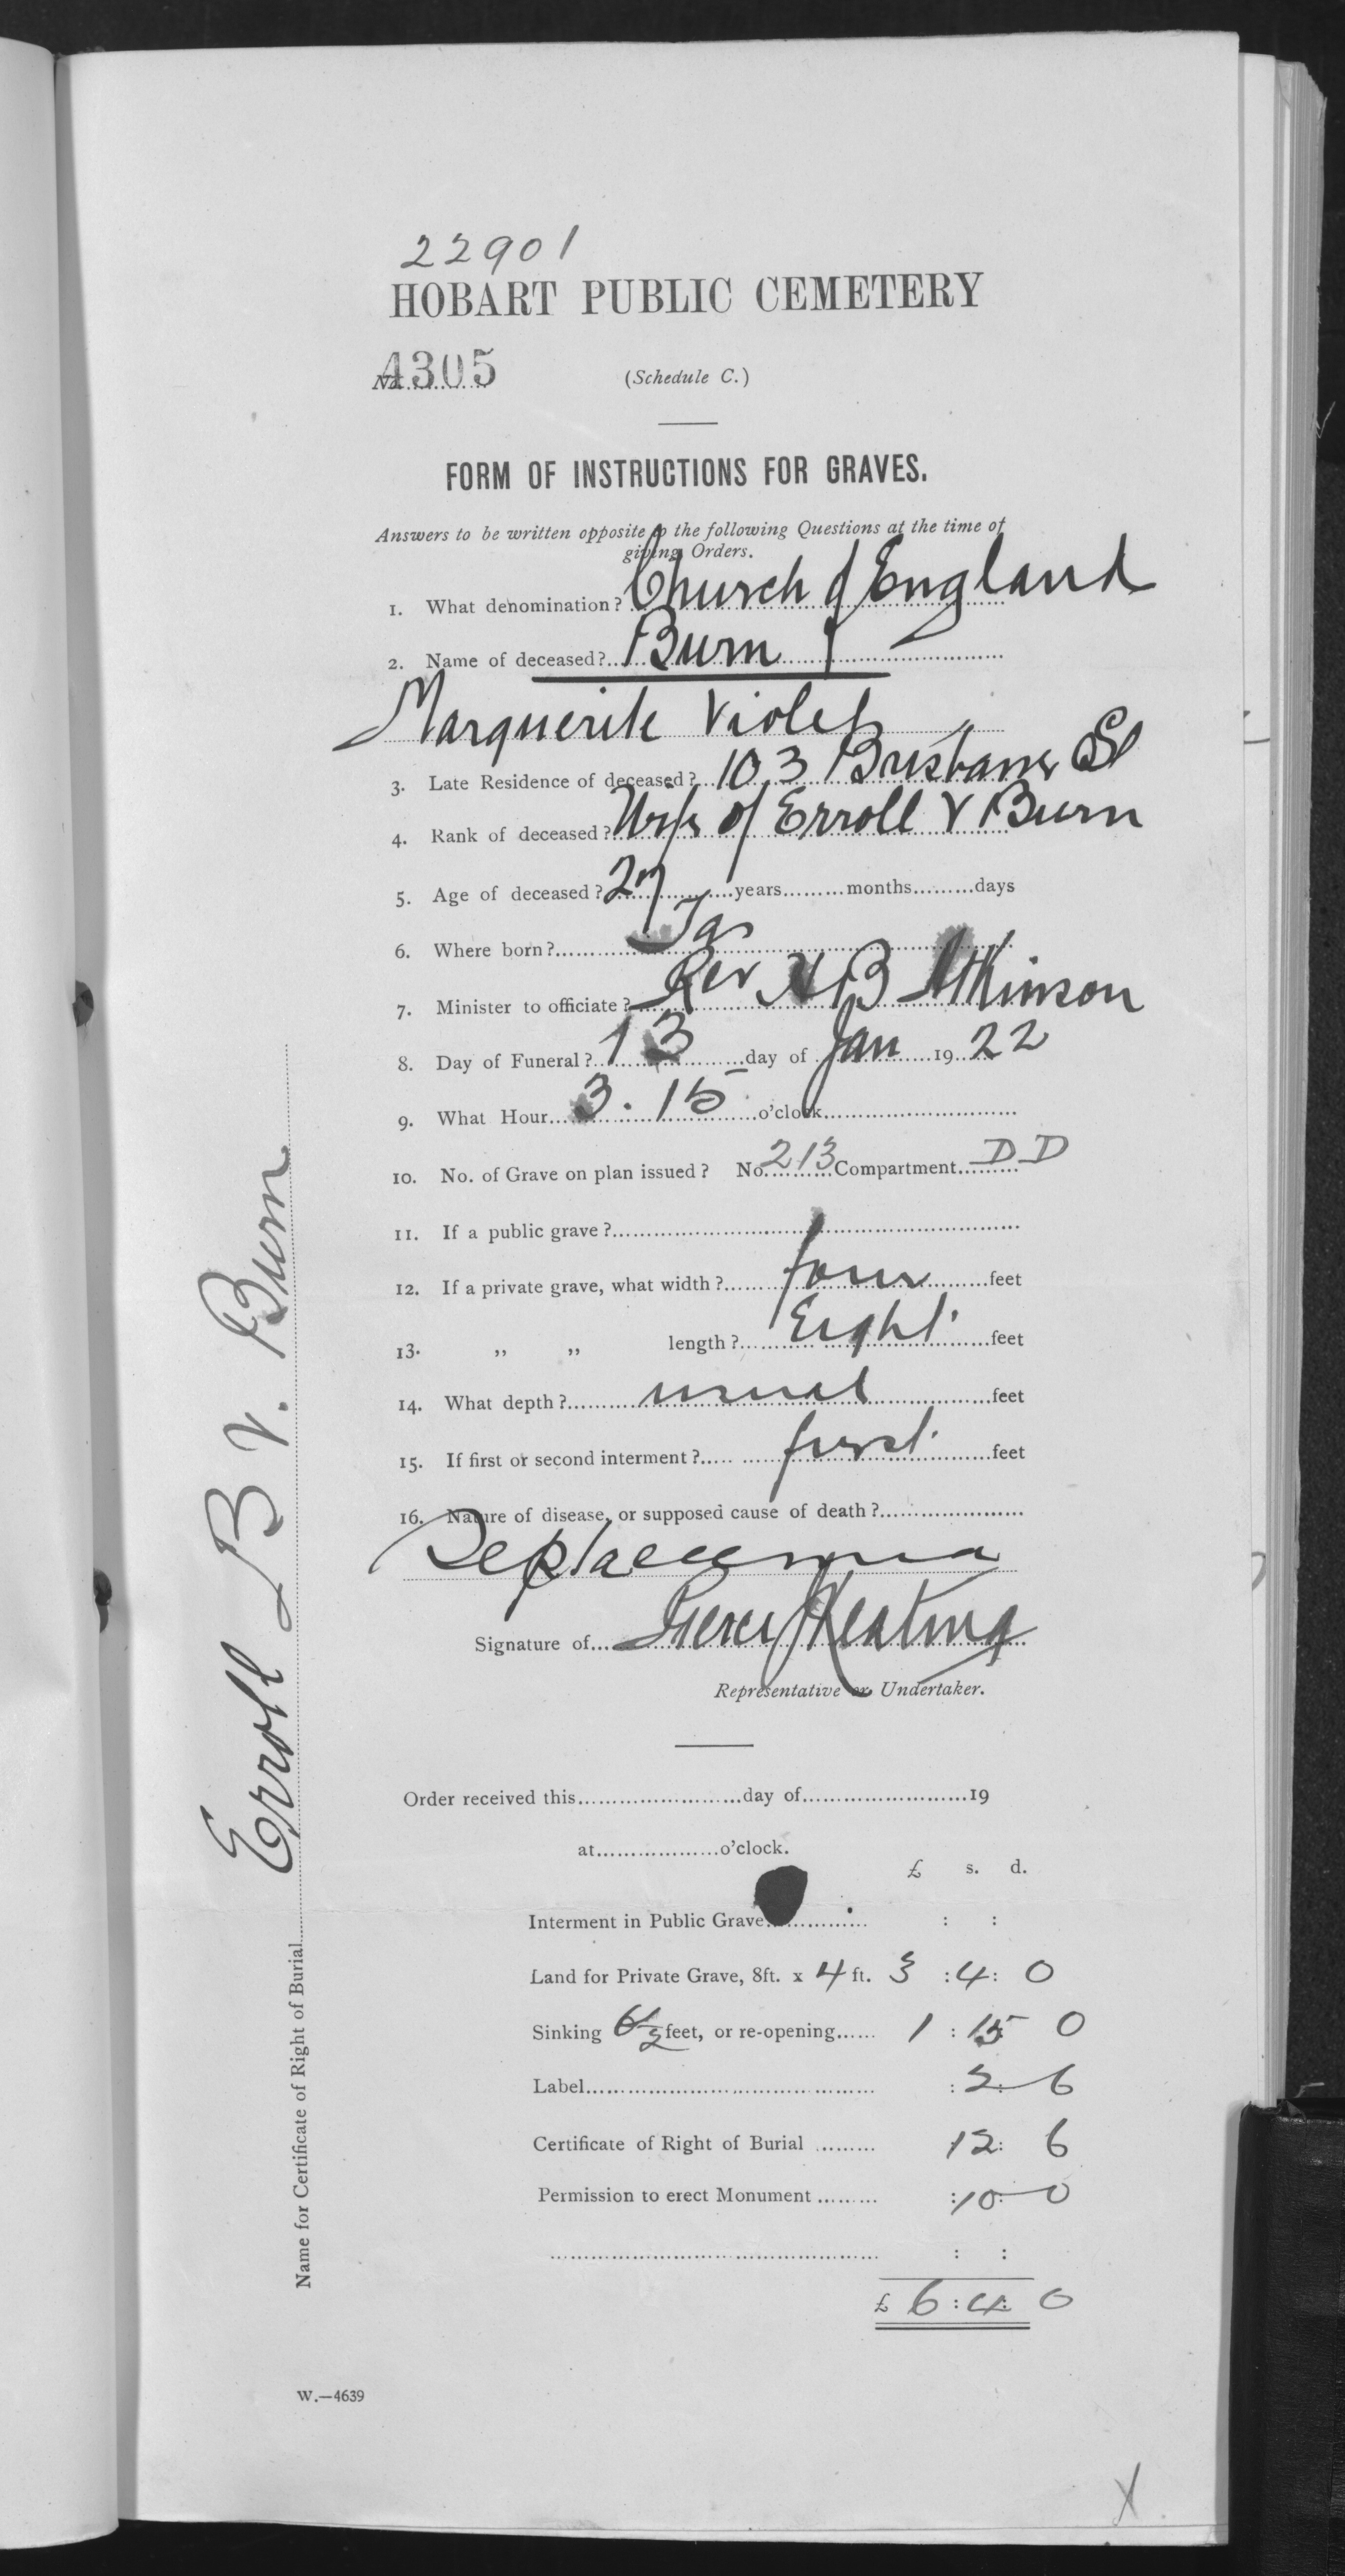 22901
HOBART PUBLIC CEMETERY
No. 4305 (Schedule C.)
FORM OF INSTRUCTIONS FOR GRAVES.
Answers to be written opposite to the following Questions at the time of
giving Orders.
1. What denomination? Church of England
2. Name of deceased? Burn
Marguerite Violet
3. Late Residence of deceased? 103 Brisbane St
4. Rank of deceased? Wife of Erroll V Burn
5. Age of deceased? 27 years months days
6. Where born? Tas
7. Minister to officiate? Rev H B Atkinson
8. Day of Funeral? 13 day of Jan 1922
9. What Hour 3.15 o'clock
10. No. of Grave on plan issued? No. 213 Compartment D D
11. If a public grave?
12. If a private grave, what width? four feet
13. „ „ length? Eight feet
14. What depth? usual feet
15. If first or second interment? first feet
16. Nature of disease, or supposed cause of death?
Septaecemia
Signature of Keating
Representative or Undertaker.
Order received this day of 19
at o'clock.
£ s. d.
Interment in Public Grave : :
Land for Private Grave, 8ft. x 4 ft. 3 : 4 : 0
Sinking 6½ feet, or re-opening 1 : 15 0
Label : 2 : 6
Certificate of Right of Burial 12 : 6
Permission to erect Monument : 10 : 0
: :
£ 6 : 4 : 0
W.—4639
Name for Certificate of Right of Burial Erroll B V. Burn